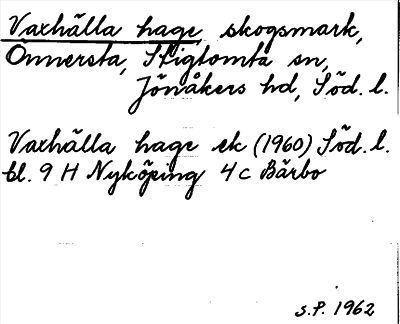 Vaxhälla hage, skogsmark,
Önnersta, Stigtomta sn,
Jönåkers hd, Söd. l.
Vaxhälla hage ek (1960) Söd. l.
bl. 9 H Nyköping 4 c Bärbo
S.P. 1962